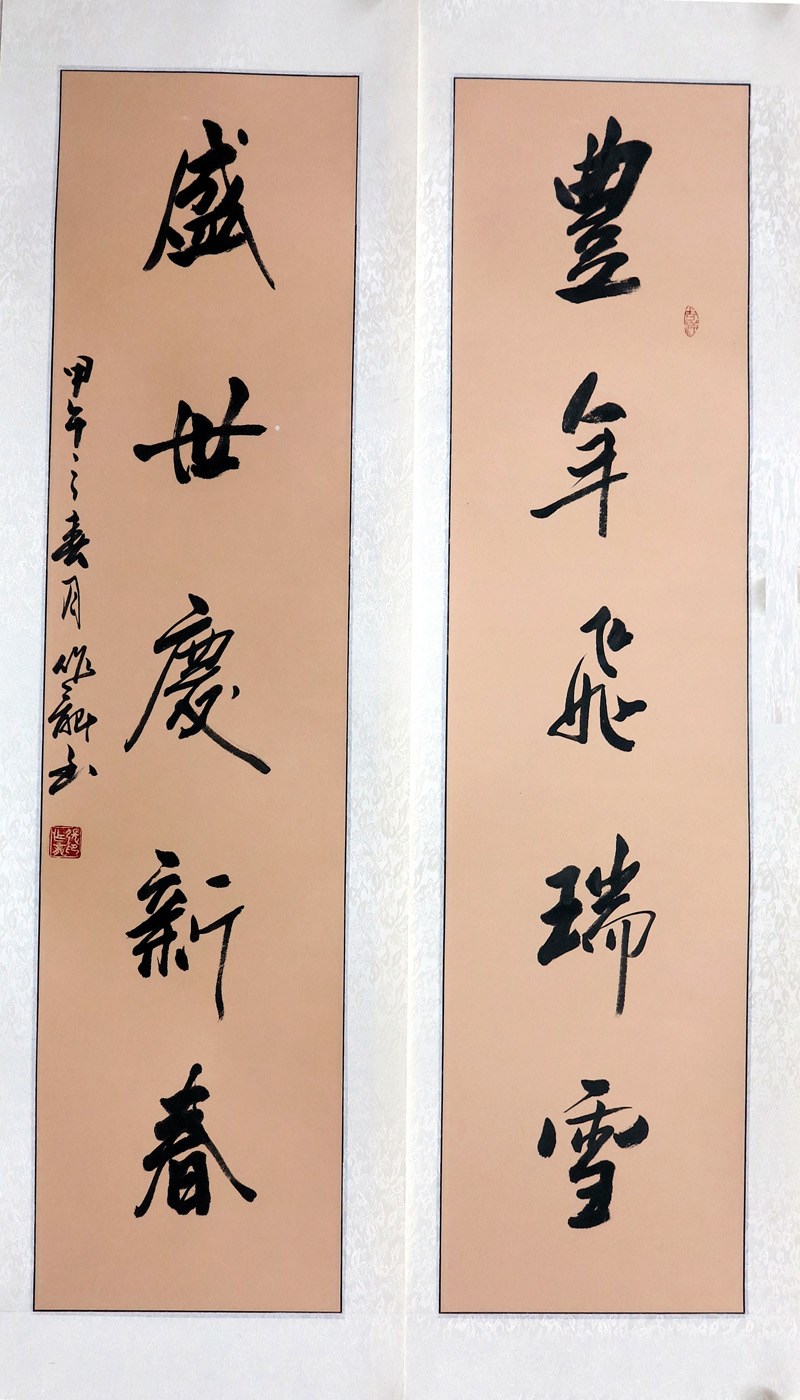 豐年飛瑞雪
盛世慶新春
甲午之春月作龢書